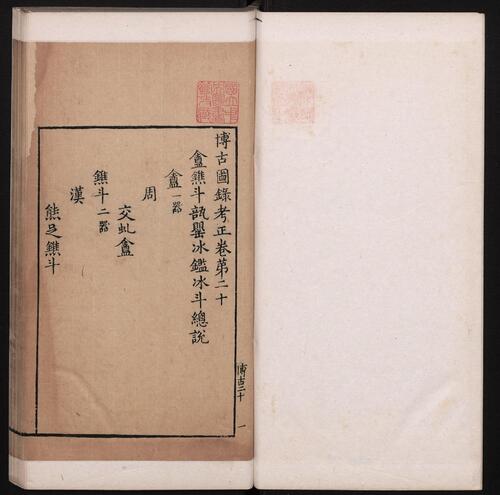 博古圖錄考正卷第二十
盦鐎斗瓿罌冰鑑冰斗總說
盦一器
周
交虬盦
鐎斗二器
漢
熊足鐎斗
博古二十
一